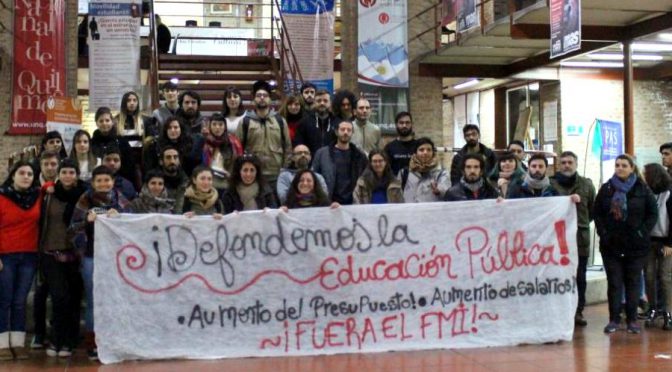 Movilidad
estudiantil
na de
Quilm
¡Defendemos la
Educación Pública!
• Aumento del Presupuesto! • Aumento de salarios!
~¡FUERA EL FMI!~